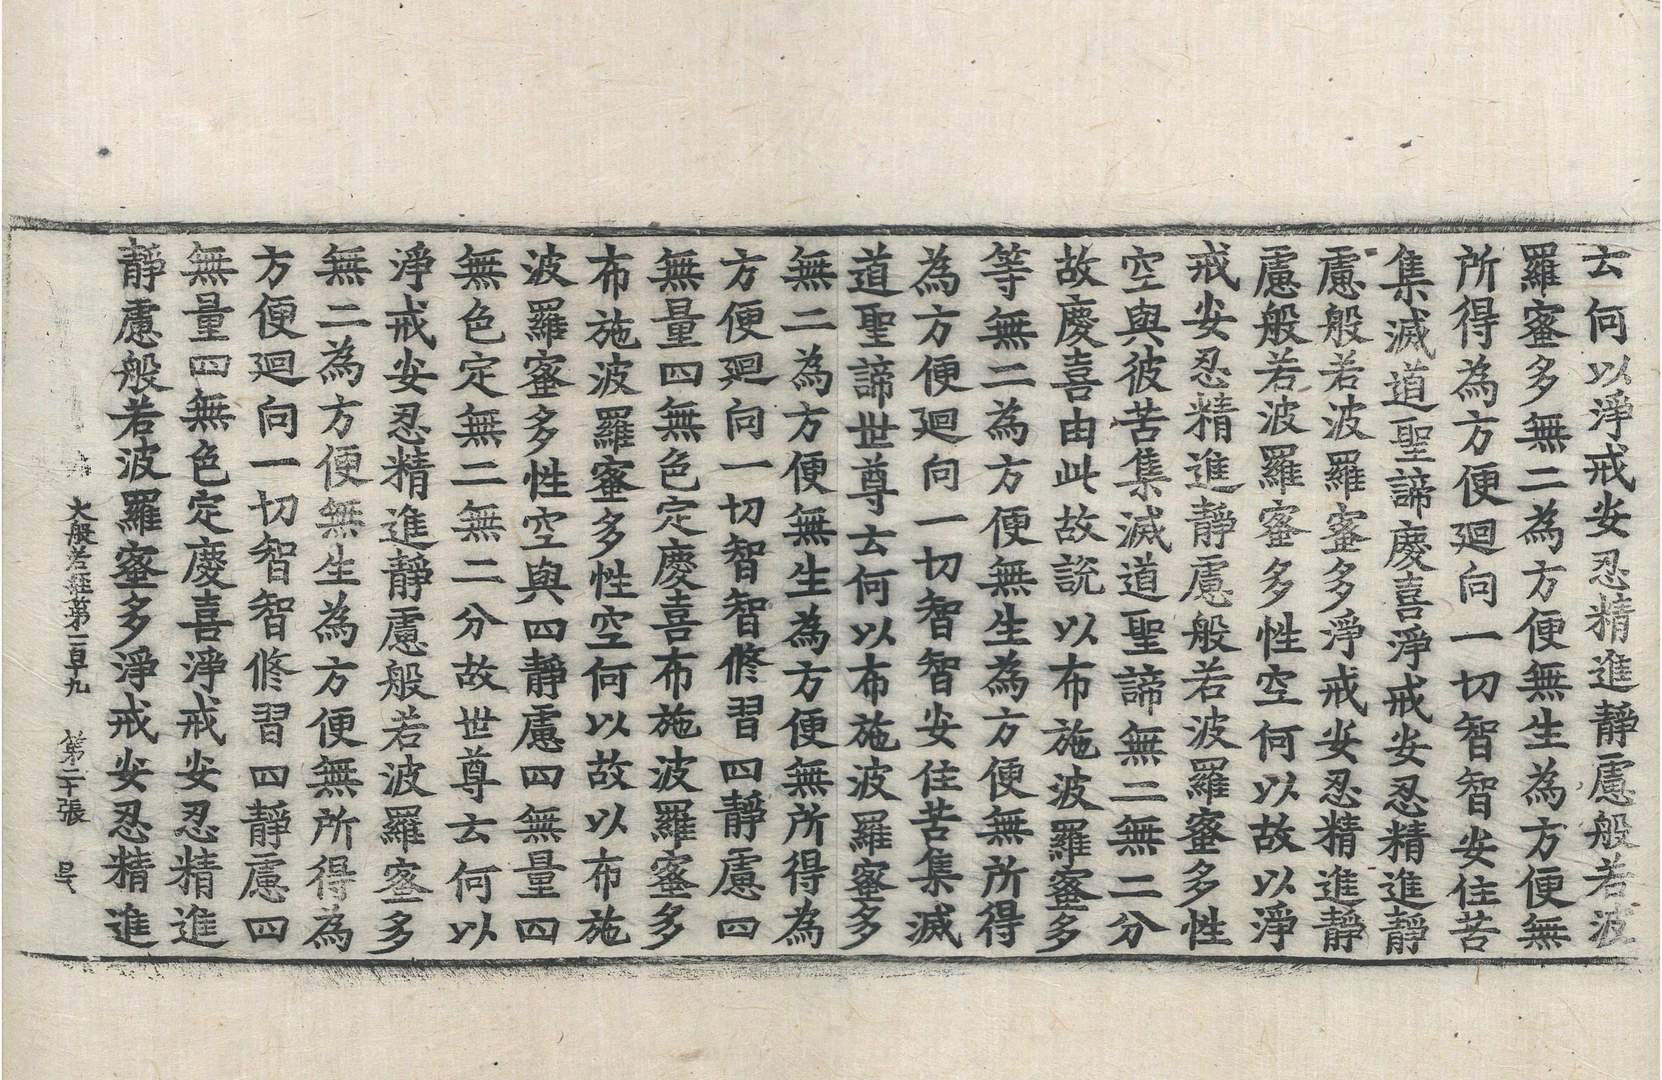 云何以淨戒安忍精進靜慮般若波
羅蜜多無二為方便無生為方便無
所得為方便廻向一切智智安住苦
集滅道聖諦慶喜淨戒安忍精進靜
慮般若波羅蜜多淨戒安忍精進靜
慮般若波羅蜜多性空何以故以淨
戒安忍精進靜慮般若波羅蜜多性
空與彼苦集滅道聖諦無二無二分
故慶喜由此故說以布施波羅蜜多
等無二為方便無生為方便無所得
為方便廻向一切智智安住苦集滅
道聖諦世尊云何以布施波羅蜜多
無二為方便無生為方便無所得為
方便廻向一切智智修習四靜慮四
無量四無色定慶喜布施波羅蜜多
布施波羅蜜多性空何以故以布施
波羅蜜多性空與四靜慮四無量四
無色定無二無二分故世尊云何以
淨戒安忍精進靜慮般若波羅蜜多
無二為方便無生為方便無所得為
方便廻向一切智智修習四靜慮四
無量四無色定慶喜淨戒安忍精進
靜慮般若波羅蜜多淨戒安忍精進
大般若經第一百九 第二十張